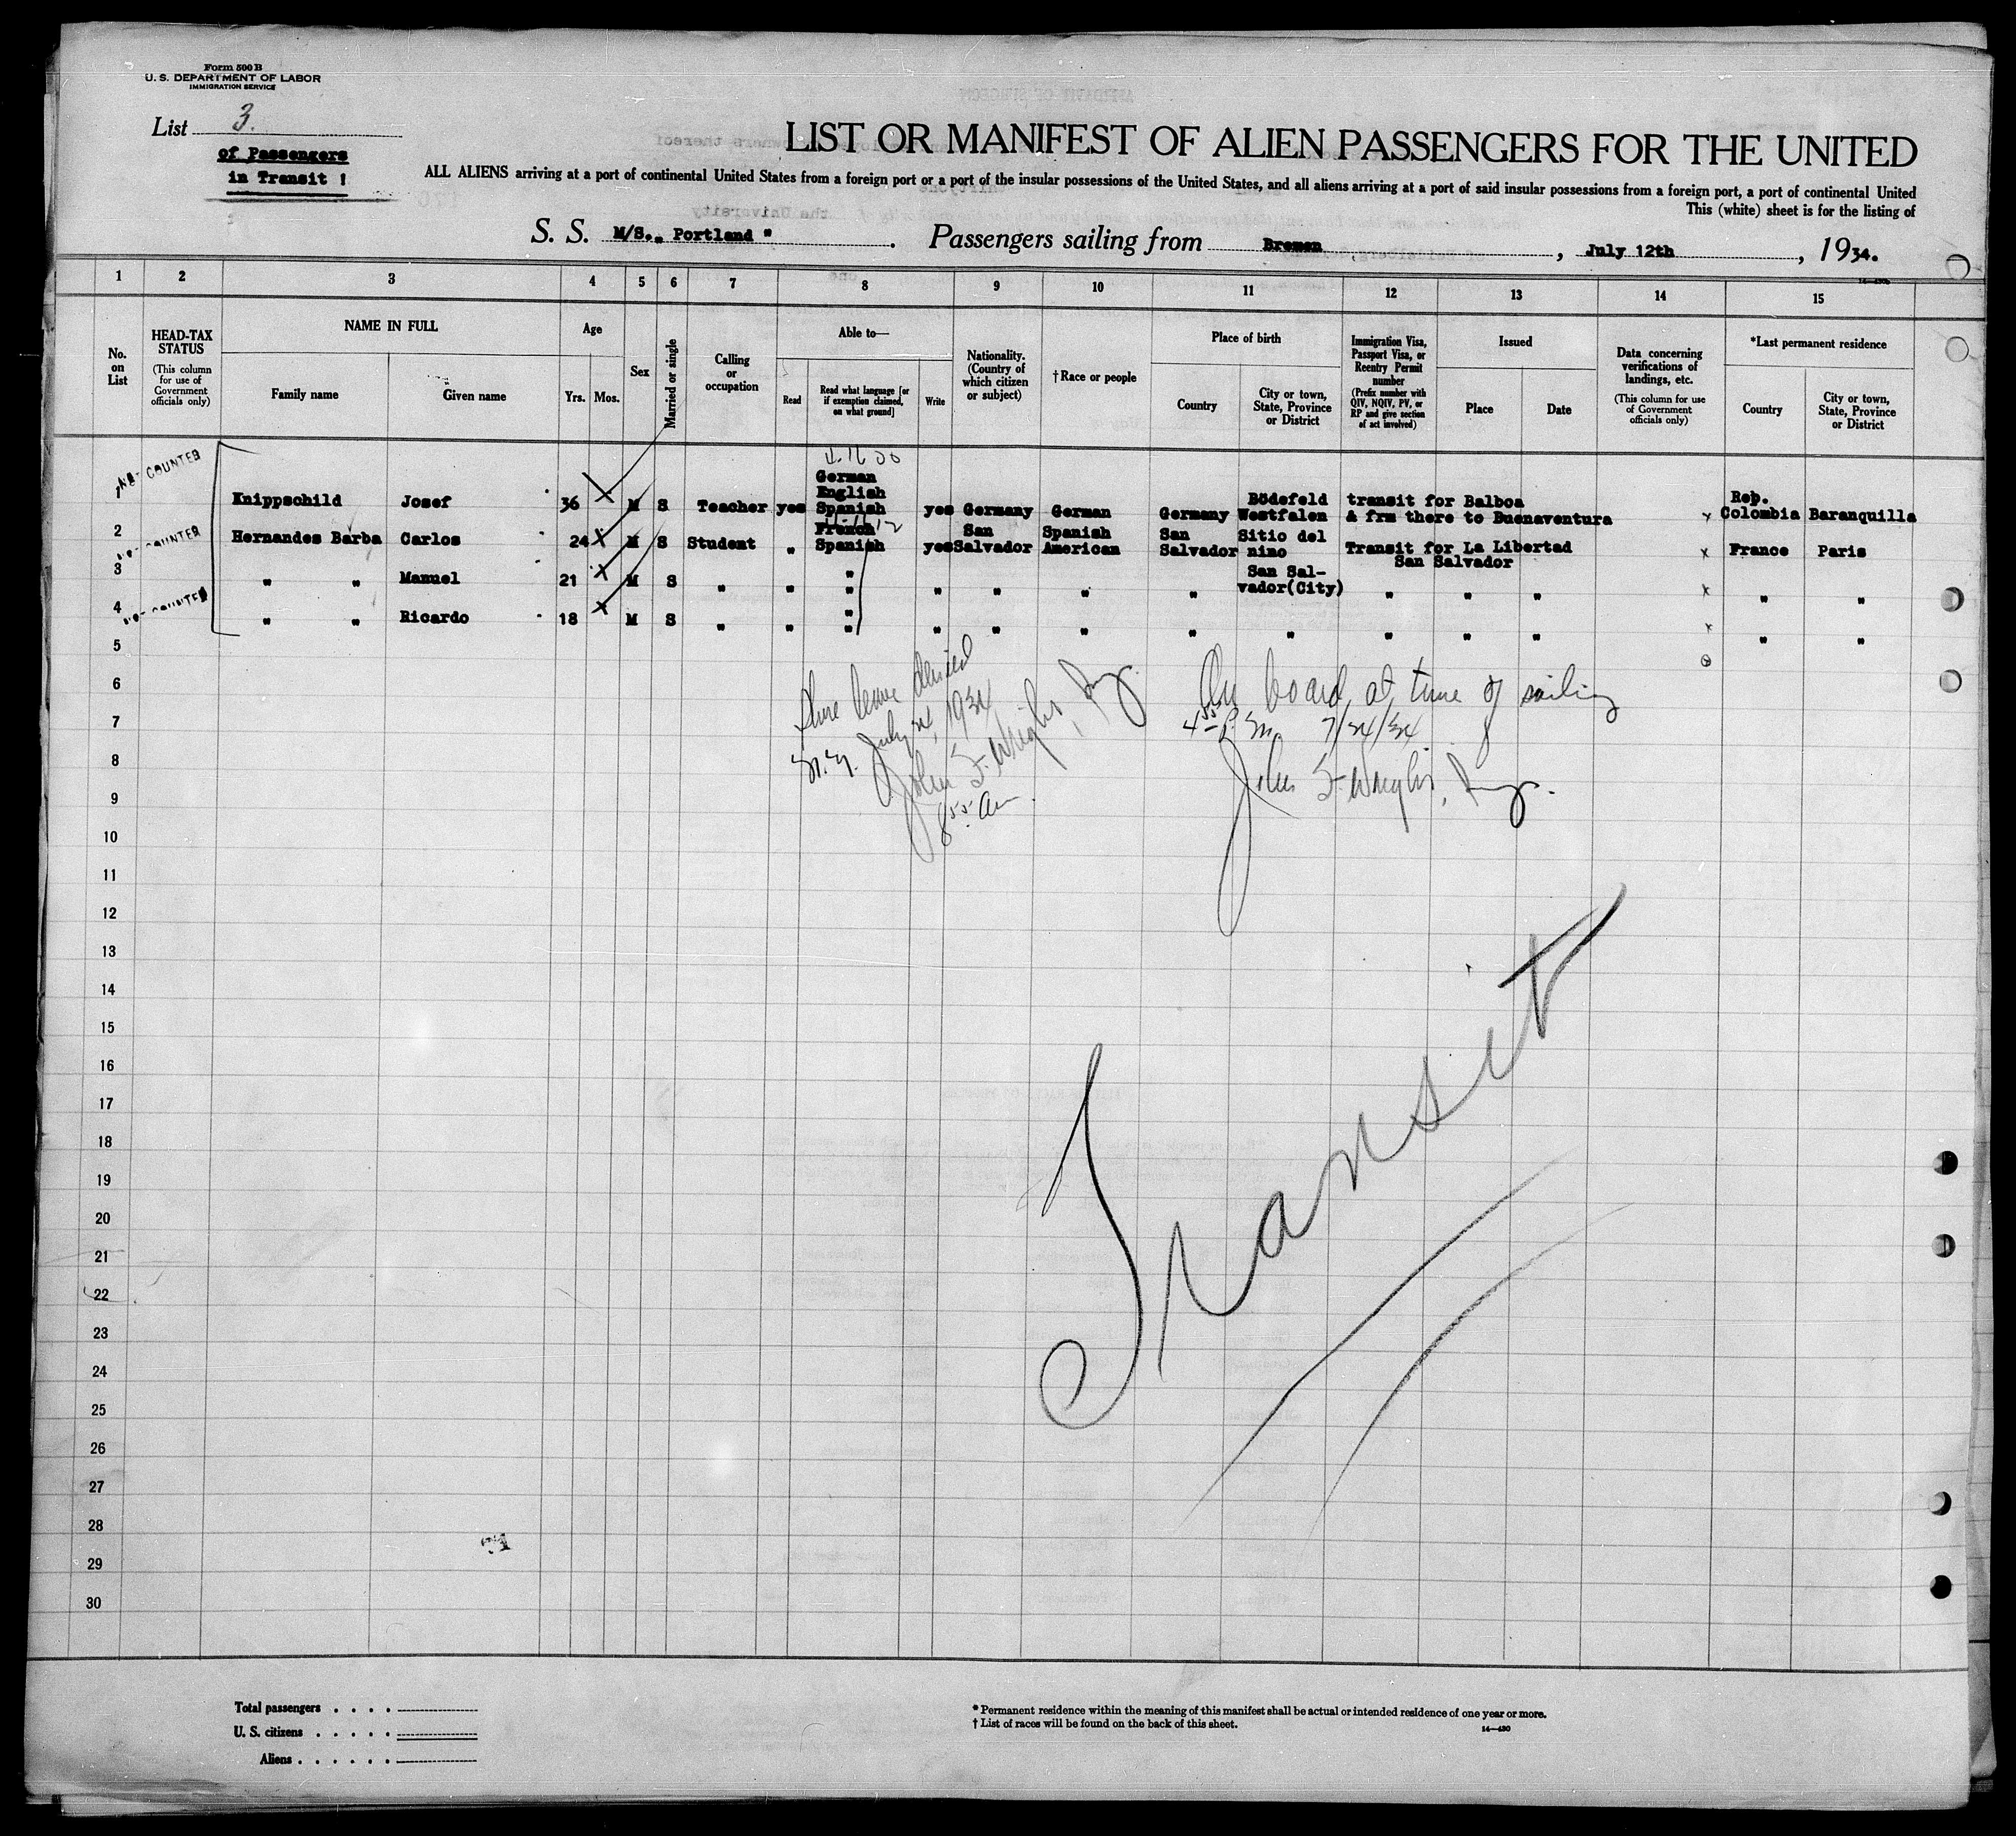 Form 500 B
U. S. DEPARTMENT OF LABOR
IMMIGRATION SERVICE
List 3.
of Passengers
in Transit !
LIST OR MANIFEST OF ALIEN PASSENGERS FOR THE UNITED
ALL ALIENS arriving at a port of continental United States from a foreign port or a port of the insular possessions of the United States, and all aliens arriving at a port of said insular possessions from a foreign port, a port of continental United
This (white) sheet is for the listing of
S. S. M/S. „ Portland " . Passengers sailing from Bremen , July 12th , 1934.
1 2 3 4 5 6 7 8 9 10 11 12 13 14 15
No. on List
HEAD-TAX STATUS
(This column for use of Government officials only)
NAME IN FULL
Family name Given name
Age
Yrs. Mos.
Sex
Married or single
Calling or occupation
Able to—
Read
Read what language [or if exemption claimed, on what ground]
Write
Nationality. (Country of which citizen or subject)
† Race or people
Place of birth
Country
City or town, State, Province or District
Immigration Visa, Passport Visa, or Reentry Permit number
(Prefix number with QIV, NQIV, PV, or RP and give section of act involved)
Issued
Place Date
Data concerning verifications of landings, etc.
(This column for use of Government officials only)
*Last permanent residence
Country
City or town, State, Province or District
1 Knippschild Josef 36 M S Teacher yes German English Spanish yes Germany German Germany Bödefeld Westfalen transit for Balboa & frm there to Buenaventura x Rep. Colombia Baranquilla
2 Hernandes Barba Carlos 24 M S Student " French Spanish yes San Salvador Spanish American San Salvador Sitio del nino Transit for La Libertad San Salvador x France Paris
3 " " Manuel 21 M S " " " " " " " San Salvador(City) " " " x " "
4 " " Ricardo 18 M S " " " " " " " " " " " x " "
5
6
7
8
9
10
11
12
13
14
15
16
17
18
19
20
21
22
23
24
25
26
27
28
29
30
Shore leave denied
N.Y. July 24, 1934
John F. Wright, Insp.
8 55 Am
On board at time of sailing
4 55 P.M. 7/24/34
John F. Wright, Insp.
Transit
Total passengers . . . .
U. S. citizens . . . . .
Aliens . . . . . .
* Permanent residence within the meaning of this manifest shall be actual or intended residence of one year or more.
† List of races will be found on the back of this sheet.
14—430